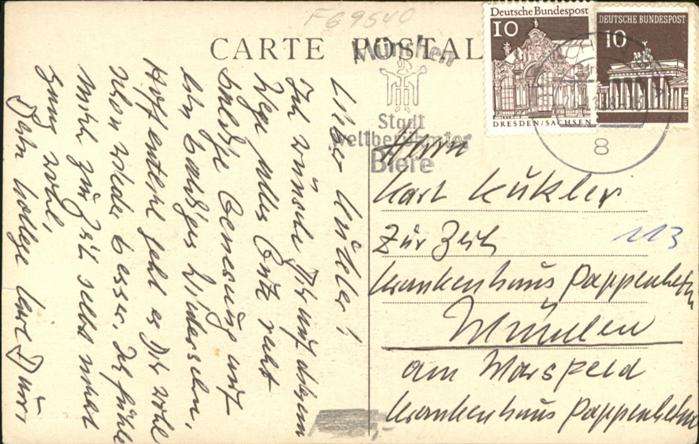 F69540
CARTE POSTALE
Deutsche Bundespost
10
DRESDEN/SACHSEN
DEUTSCHE BUNDESPOST
10
München
Stadt
weltberühmter
Biere
8
Lieber Kukeler!
Ich wünsche Dir und Deinem
alles Gute recht
baldige Genesung auf
ein baldiges Wiedersehn.
Hoffentlich geht es Dir wohl
schon wieder besser. Ich fühle
mich zur Zeit selbst nicht
ganz wohl,
Dein Kollege Karl
Herrn
Karl Kukler
Zur Zeit
Krankenhaus Pappenheim
München
am Marsfeld
Krankenhaus Pappenheim
113